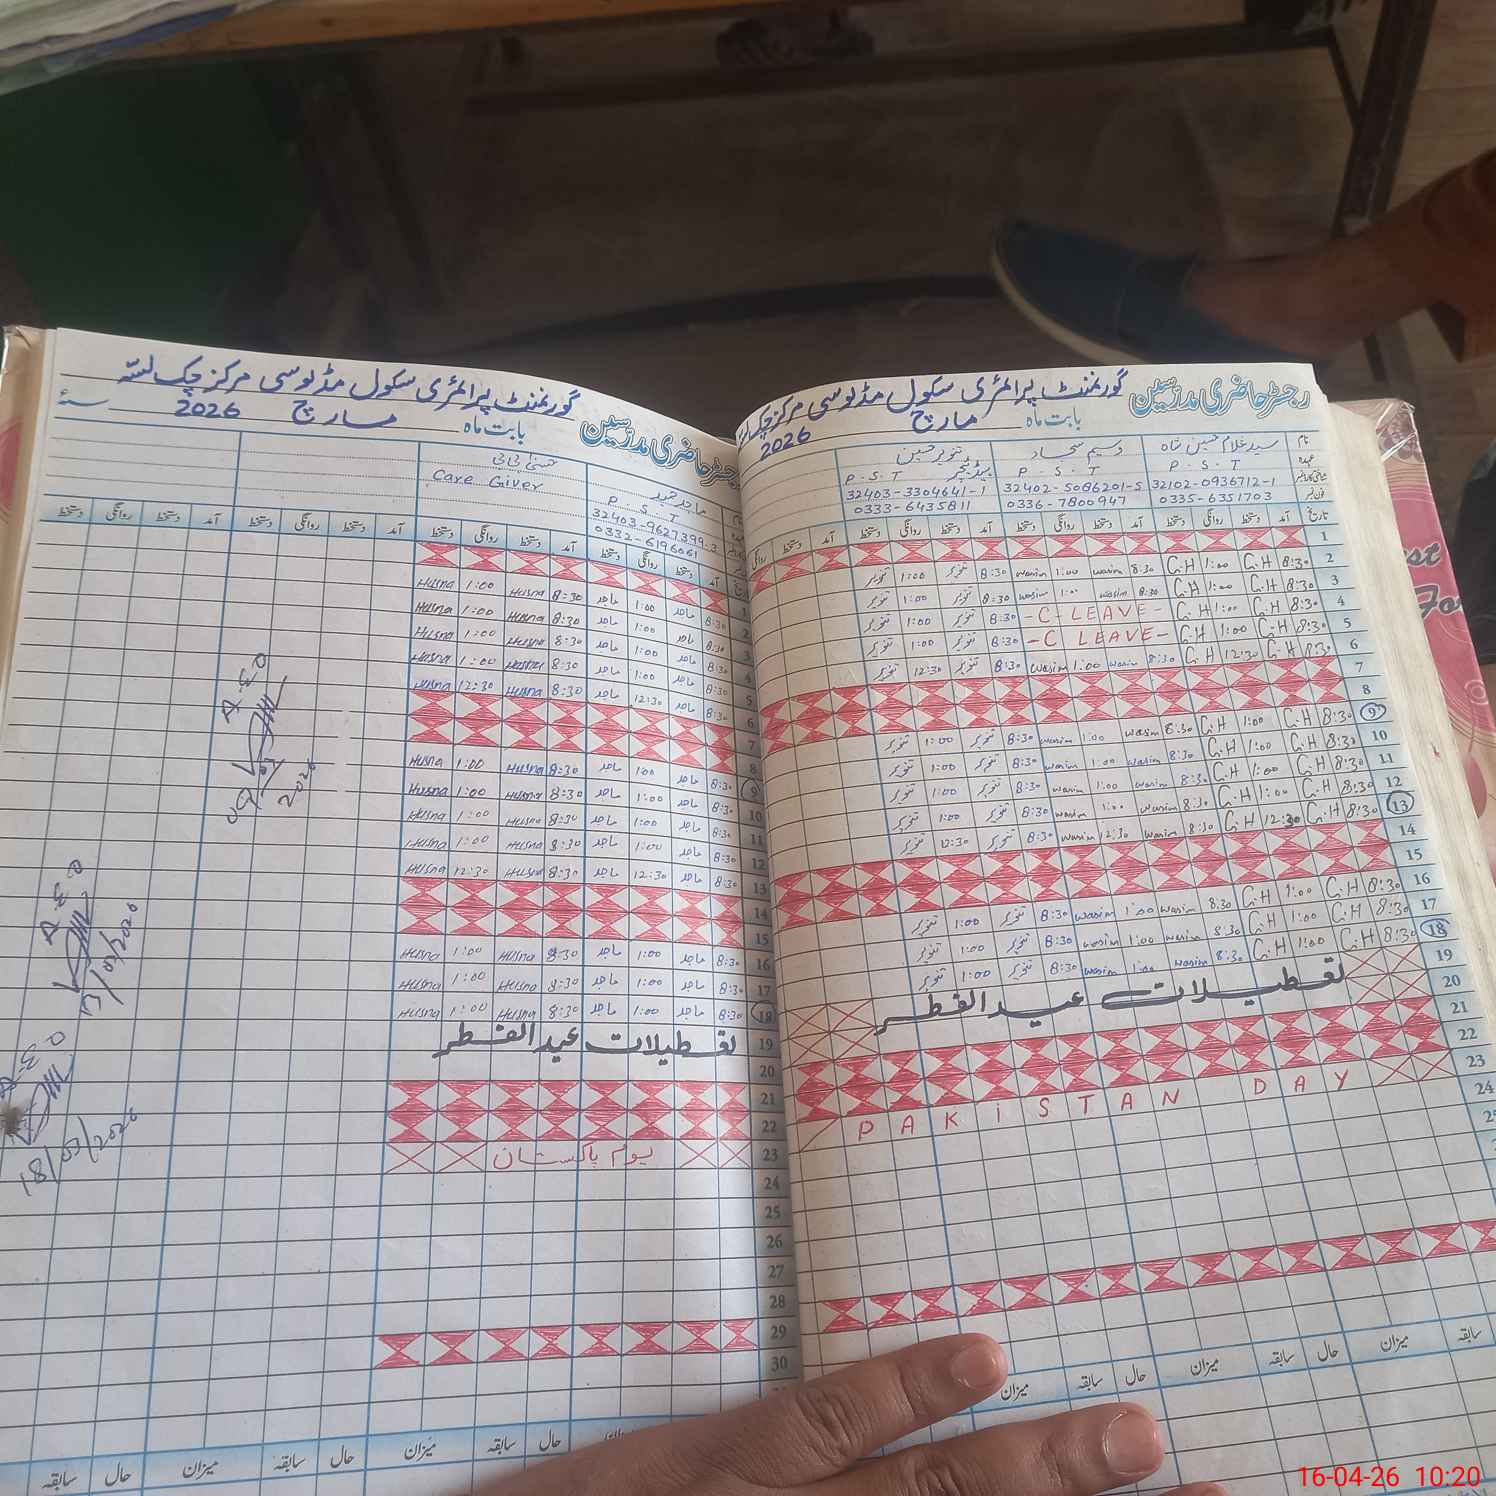 رجسٹر حاضری مدرسین گورنمنٹ پرائمری سکول مڈلوسی مرکز چک
بابت ماہ مارچ 2026
نام سید غلام حسین شاہ وسیم سجاد تنویر حسین
عہدہ P.S.T P.S.T P.S.T ہیڈ ٹیچر
32102-0936712-1 32402-5086201-5 32403-3304641-1
فون نمبر 0335-6351703 0336-7800947 0333-6435811
تاریخ آمد دستخط روانگی دستخط آمد دستخط روانگی دستخط آمد دستخط روانگی دستخط آمد دستخط روانگی
1
2 8:30 G.H 1:00 G.H 8:30 wasim 1:00 wasim 8:30 تنویر 1:00 تنویر
3 8:30 G.H 1:00 G.H 8:30 wasim 1:00 wasim 8:30 تنویر 1:00 تنویر
4 8:30 G.H 1:00 G.H -C-LEAVE- 8:30 تنویر 1:00 تنویر
5 8:30 G.H 1:00 G.H -C LEAVE- 8:30 تنویر 1:00 تنویر
6 8:30 G.H 12:30 G.H 8:30 wasim 1:00 wasim 8:30 تنویر 12:30 تنویر
7
8
9 8:30 G.H 1:00 G.H 8:30 wasim 1:00 wasim 8:30 تنویر 1:00 تنویر
10 8:30 G.H 1:00 G.H 8:30 wasim 1:00 wasim 8:30 تنویر 1:00 تنویر
11 8:30 G.H 1:00 G.H 8:30 wasim 1:00 wasim 8:30 تنویر 1:00 تنویر
12 8:30 G.H 1:00 G.H 8:30 wasim 1:00 wasim 8:30 تنویر 1:00 تنویر
13 8:30 G.H 12:30 G.H 8:30 wasim 12:30 wasim 8:30 تنویر 12:30 تنویر
14
15
16 8:30 G.H 1:00 G.H 8:30 wasim 1:00 wasim 8:30 تنویر 1:00 تنویر
17 8:30 G.H 1:00 G.H 8:30 wasim 1:00 wasim 8:30 تنویر 1:00 تنویر
18 8:30 G.H 1:00 G.H 8:30 wasim 1:00 wasim 8:30 تنویر 1:00 تنویر
19 تعطیلات عید الفطر
20
21
22
23 PAKiSTAN DAY
24
سابقہ میزان حال سابقہ میزان حال سابقہ میزان
رجسٹر حاضری مدرسین گورنمنٹ پرائمری سکول مڈلوسی مرکز چک
بابت ماہ مارچ 2026
ماجد حمید حسنیٰ بی بی
P S T Care Giver
32403-9627399-3
0332-6196061
آمد دستخط روانگی دستخط آمد دستخط روانگی دستخط آمد دستخط روانگی دستخط آمد دستخط روانگی دستخط
1
2 8:30 ماجد 1:00 ماجد 8:30 Husna 1:00 Husna
3 8:30 ماجد 1:00 ماجد 8:30 Husna 1:00 Husna
4 8:30 ماجد 1:00 ماجد 8:30 Husna 1:00 Husna
5 8:30 ماجد 1:00 ماجد 8:30 Husna 1:00 Husna
6 8:30 ماجد 12:30 ماجد 8:30 Husna 12:30 Husna
7
8
9 8:30 ماجد 1:00 ماجد 8:30 Husna 1:00 Husna
10 8:30 ماجد 1:00 ماجد 8:30 Husna 1:00 Husna
11 8:30 ماجد 1:00 ماجد 8:30 Husna 1:00 Husna
12 8:30 ماجد 1:00 ماجد 8:30 Husna 1:00 Husna
13 8:30 ماجد 12:30 ماجد 8:30 Husna 12:30 Husna
14
15
16 8:30 ماجد 1:00 ماجد 8:30 Husna 1:00 Husna
17 8:30 ماجد 1:00 ماجد 8:30 Husna 1:00 Husna
18 8:30 ماجد 1:00 ماجد 8:30 Husna 1:00 Husna
19 تعطیلات عید الفطر
20
21
22
23 یوم پاکستان
24
25
26
27
28
29
30
حال سابقہ میزان حال سابقہ میزان حال سابقہ
A.E.O
09/03/2026
A.E.O
13/03/2026
A.E.O
18/03/2026
16-04-26 10:20